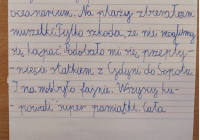 oceanarium. Na plaży zbierałam
muszelki tylko szkoda, że nie mogliśmy
się kąpać. Podobało mi się przepły-
nięcie statkiem z Gdyni do Sopotu.
I na molo było fajnie. Wszyscy ku-
powali super pamiątki. Cała